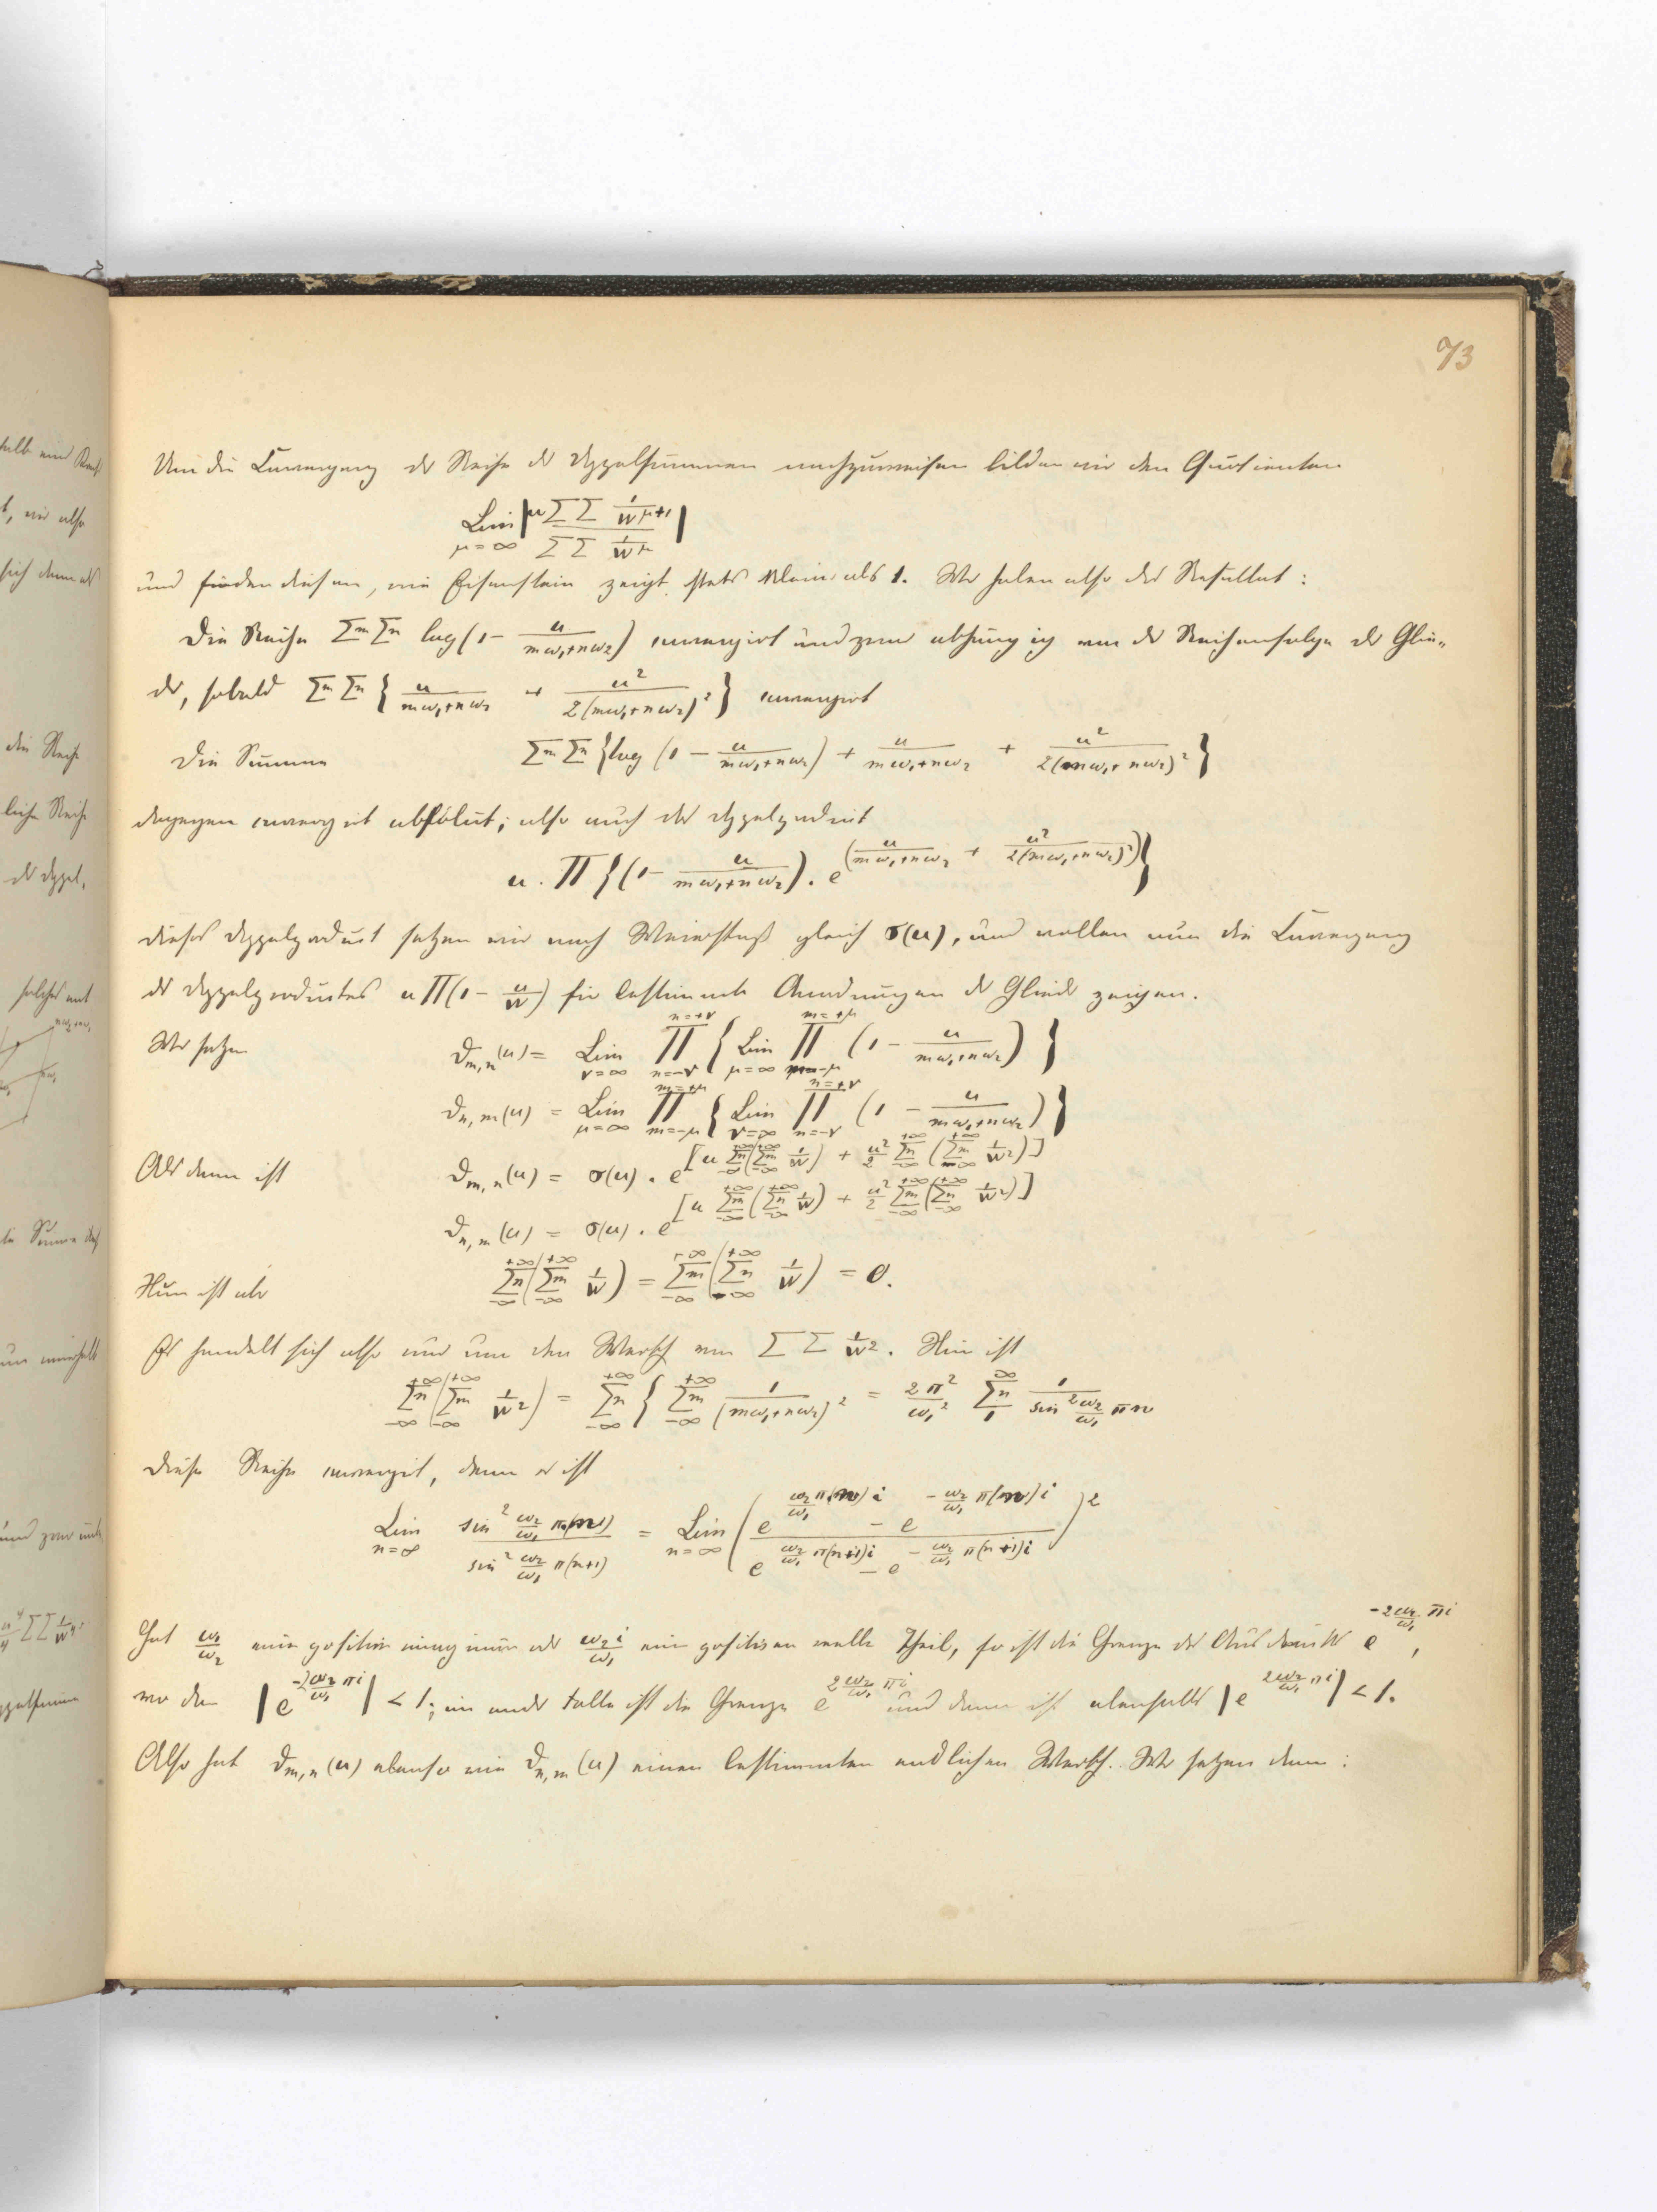 73
Um die Convergenz der Reihe der Doppelsummen nachzuweisen bilden wir den Quotienten
Lim_{μ=∞} |μ ΣΣ 1/w^{μ+1} / ΣΣ 1/w^μ|
und finden diesen, wie Eisenstein zeigt, stets kleiner als 1. Wir haben also das Resultat:
Die Reihe Σm Σn log(1 - u/(mω₁+nω₂)) convergirt und zwar abhängig von der Reihenfolge der Glie-
der, sobald Σm Σn { u/(mω₁+nω₂) + u²/2(mω₁+nω₂)² } convergirt
Die Summe Σm Σn {log (1 - u/(mω₁+nω₂)) + u/(mω₁+nω₂) + u²/2(mω₁+nω₂)² }
dagegen convergirt absolut; also auch das Doppelproduct
u . Π {(1 - u/(mω₁+nω₂)) . e^{(u/(mω₁+nω₂) + u²/2(mω₁+nω₂)²)}}
dieses Doppelproduct setzen wir nach Weierstraß gleich σ(u), und wollen nun die Convergenz
des Doppelproductes u Π(1 - u/w) für bestimmte Anordnungen der Glieder zeigen.
Wir setzen ϑ_{m,n}(u) = Lim_{ν=∞} Π_{n=-ν}^{n=+ν} { Lim_{μ=∞} Π_{m=-μ}^{m=+μ} (1 - u/(mω₁+nω₂)) }
ϑ_{n,m}(u) = Lim_{μ=∞} Π_{m=-μ}^{m=+μ} { Lim_{ν=∞} Π_{n=-ν}^{n=+ν} (1 - u/(mω₁+nω₂)) }
Alsdann ist ϑ_{m,n}(u) = σ(u) . e^{[u Σn_{-∞}^{+∞} (Σm_{-∞}^{+∞} 1/w) + u²/2 Σn_{-∞}^{+∞} (Σm_{-∞}^{+∞} 1/w²)]}
ϑ_{n,m}(u) = σ(u) . e^{[u Σm_{-∞}^{+∞} (Σn_{-∞}^{+∞} 1/w) + u²/2 Σm_{-∞}^{+∞} (Σn_{-∞}^{+∞} 1/w²)]}
Nun ist aber Σn_{-∞}^{+∞} (Σm_{-∞}^{+∞} 1/w) = Σm_{-∞}^{+∞} (Σn_{-∞}^{+∞} 1/w) = 0.
Es handelt sich also nur um den Werth von ΣΣ 1/w². Hier ist
Σn_{-∞}^{+∞} (Σm_{-∞}^{+∞} 1/w²) = Σn_{-∞}^{+∞} { Σm_{-∞}^{+∞} 1/(mω₁+nω₂)² = 2π²/ω₁² Σn_{1}^{∞} 1/sin² ω₂/ω₁ πn
Diese Reihe convergirt, denn es ist
Lim_{n=∞} sin² ω₂/ω₁ π(n) / sin² ω₂/ω₁ π(n+1) = Lim_{n=∞} ( (e^{ω₂/ω₁ π(n)i} - e^{-ω₂/ω₁ π(n)i}) / (e^{ω₂/ω₁ π(n+1)i} - e^{-ω₂/ω₁ π(n+1)i}) )²
Hat ω₁/ω₂ einen positiv imaginären oder ω₂i/ω₁ einen positiven reellen Theil, so ist die Grenze des Ausdrucks e^{-2ω₂/ω₁ πi},
wo dann |e^{-2ω₂/ω₁ πi}| < 1; im andern Falle ist die Grenze e^{2ω₂/ω₁ πi} und dann ist ebenfalls |e^{2ω₂/ω₁ πi}| < 1.
Also hat ϑ_{m,n}(u) ebenso wie ϑ_{n,m}(u) einen bestimmten endlichen Werth. Wir setzen dann: